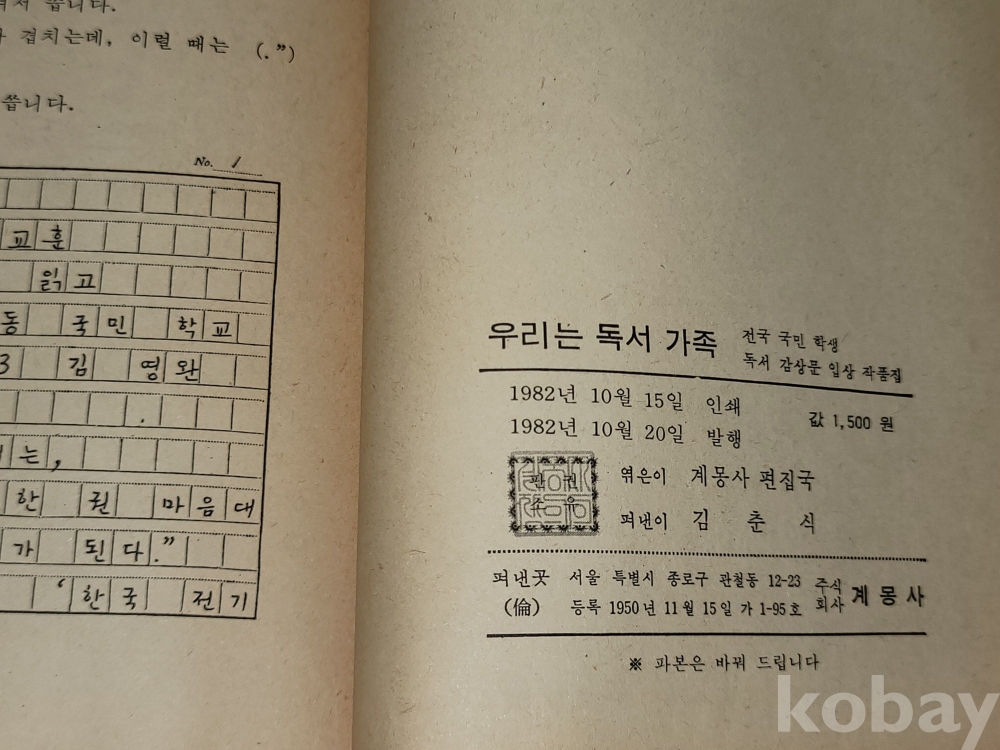 쓥니다.
겹치는데, 이럴 때는 (.”)
쓥니다.
No. 1
교훈
읽고
동 국민 학교
3 김 영완
.
는,
한 권 마음대
가 된다.”
‘한국 전기
우리는 독서 가족
전국 국민 학생
독서 감상문 입상 작품집
1982년 10월 15일 인쇄
1982년 10월 20일 발행
값 1,500 원
판권
소유
엮은이 계몽사 편집국
펴낸이 김 춘 식
펴낸곳 서울 특별시 종로구 관철동 12-23
(倫) 등록 1950년 11월 15일 가 1-95호
주식
회사 계몽사
※ 파본은 바꿔 드립니다
kobay